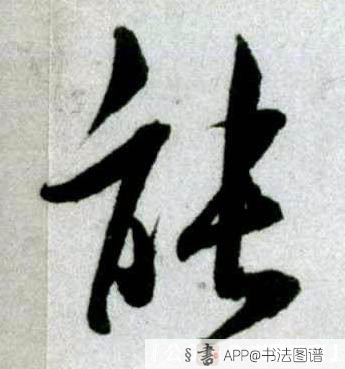 能
§書 APP@书法图谱